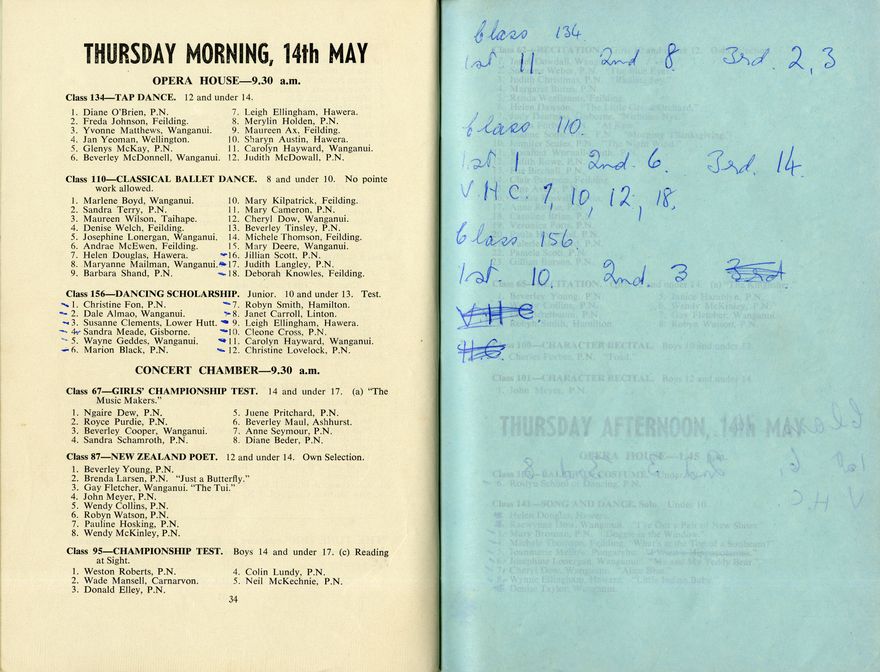 THURSDAY MORNING, 14th MAY
OPERA HOUSE—9.30 a.m.
Class 134—TAP DANCE. 12 and under 14.
1. Diane O'Brien, P.N.
2. Freda Johnson, Feilding.
3. Yvonne Matthews, Wanganui.
4. Jan Yeoman, Wellington.
5. Glenys McKay, P.N.
6. Beverley McDonnell, Wanganui.
7. Leigh Ellingham, Hawera.
8. Merylin Holden, P.N.
9. Maureen Ax, Feilding.
10. Sharyn Austin, Hawera.
11. Carolyn Hayward, Wanganui.
12. Judith McDowall, P.N.
Class 110—CLASSICAL BALLET DANCE. 8 and under 10. No pointe
work allowed.
1. Marlene Boyd, Wanganui.
2. Sandra Terry, P.N.
3. Maureen Wilson, Taihape.
4. Denise Welch, Feilding.
5. Josephine Lonergan, Wanganui.
6. Andrae McEwen, Feilding.
7. Helen Douglas, Hawera.
8. Maryanne Mailman, Wanganui.
9. Barbara Shand, P.N.
10. Mary Kilpatrick, Feilding.
11. Mary Cameron, P.N.
12. Cheryl Dow, Wanganui.
13. Beverley Tinsley, P.N.
14. Michele Thomson, Feilding.
15. Mary Deere, Wanganui.
16. Jillian Scott, P.N.
17. Judith Langley, P.N.
18. Deborah Knowles, Feilding.
Class 156—DANCING SCHOLARSHIP. Junior. 10 and under 13. Test.
1. Christine Fon, P.N.
2. Dale Almao, Wanganui.
3. Susanne Clements, Lower Hutt.
4. Sandra Meade, Gisborne.
5. Wayne Geddes, Wanganui.
6. Marion Black, P.N.
7. Robyn Smith, Hamilton.
8. Janet Carroll, Linton.
9. Leigh Ellingham, Hawera.
10. Cleone Cross, P.N.
11. Carolyn Hayward, Wanganui.
12. Christine Lovelock, P.N.
CONCERT CHAMBER—9.30 a.m.
Class 67—GIRLS' CHAMPIONSHIP TEST. 14 and under 17. (a) "The
Music Makers."
1. Ngaire Dew, P.N.
2. Royce Purdie, P.N.
3. Beverley Cooper, Wanganui.
4. Sandra Schamroth, P.N.
5. Juene Pritchard, P.N.
6. Beverley Maul, Ashhurst.
7. Anne Seymour, P.N.
8. Diane Beder, P.N.
Class 87—NEW ZEALAND POET. 12 and under 14. Own Selection.
1. Beverley Young, P.N.
2. Brenda Larsen, P.N. "Just a Butterfly."
3. Gay Fletcher, Wanganui. "The Tui."
4. John Meyer, P.N.
5. Wendy Collins, P.N.
6. Robyn Watson, P.N.
7. Pauline Hosking, P.N.
8. Wendy McKinley, P.N.
Class 95—CHAMPIONSHIP TEST. Boys 14 and under 17. (c) Reading
at Sight.
1. Weston Roberts, P.N.
2. Wade Mansell, Carnarvon.
3. Donald Elley, P.N.
4. Colin Lundy, P.N.
5. Neil McKechnie, P.N.
34
Class 134.
1st. 11. 2nd 8. 3rd. 2, 3
Class 110.
1st. 1 2nd. 6. 3rd. 14.
V.H.C. 7, 10, 12, 18.
Class 156.
1st. 10. 2nd. 3 3rd.
V H C.
H.C.
THURSDAY AFTERNOON, 14th MAY